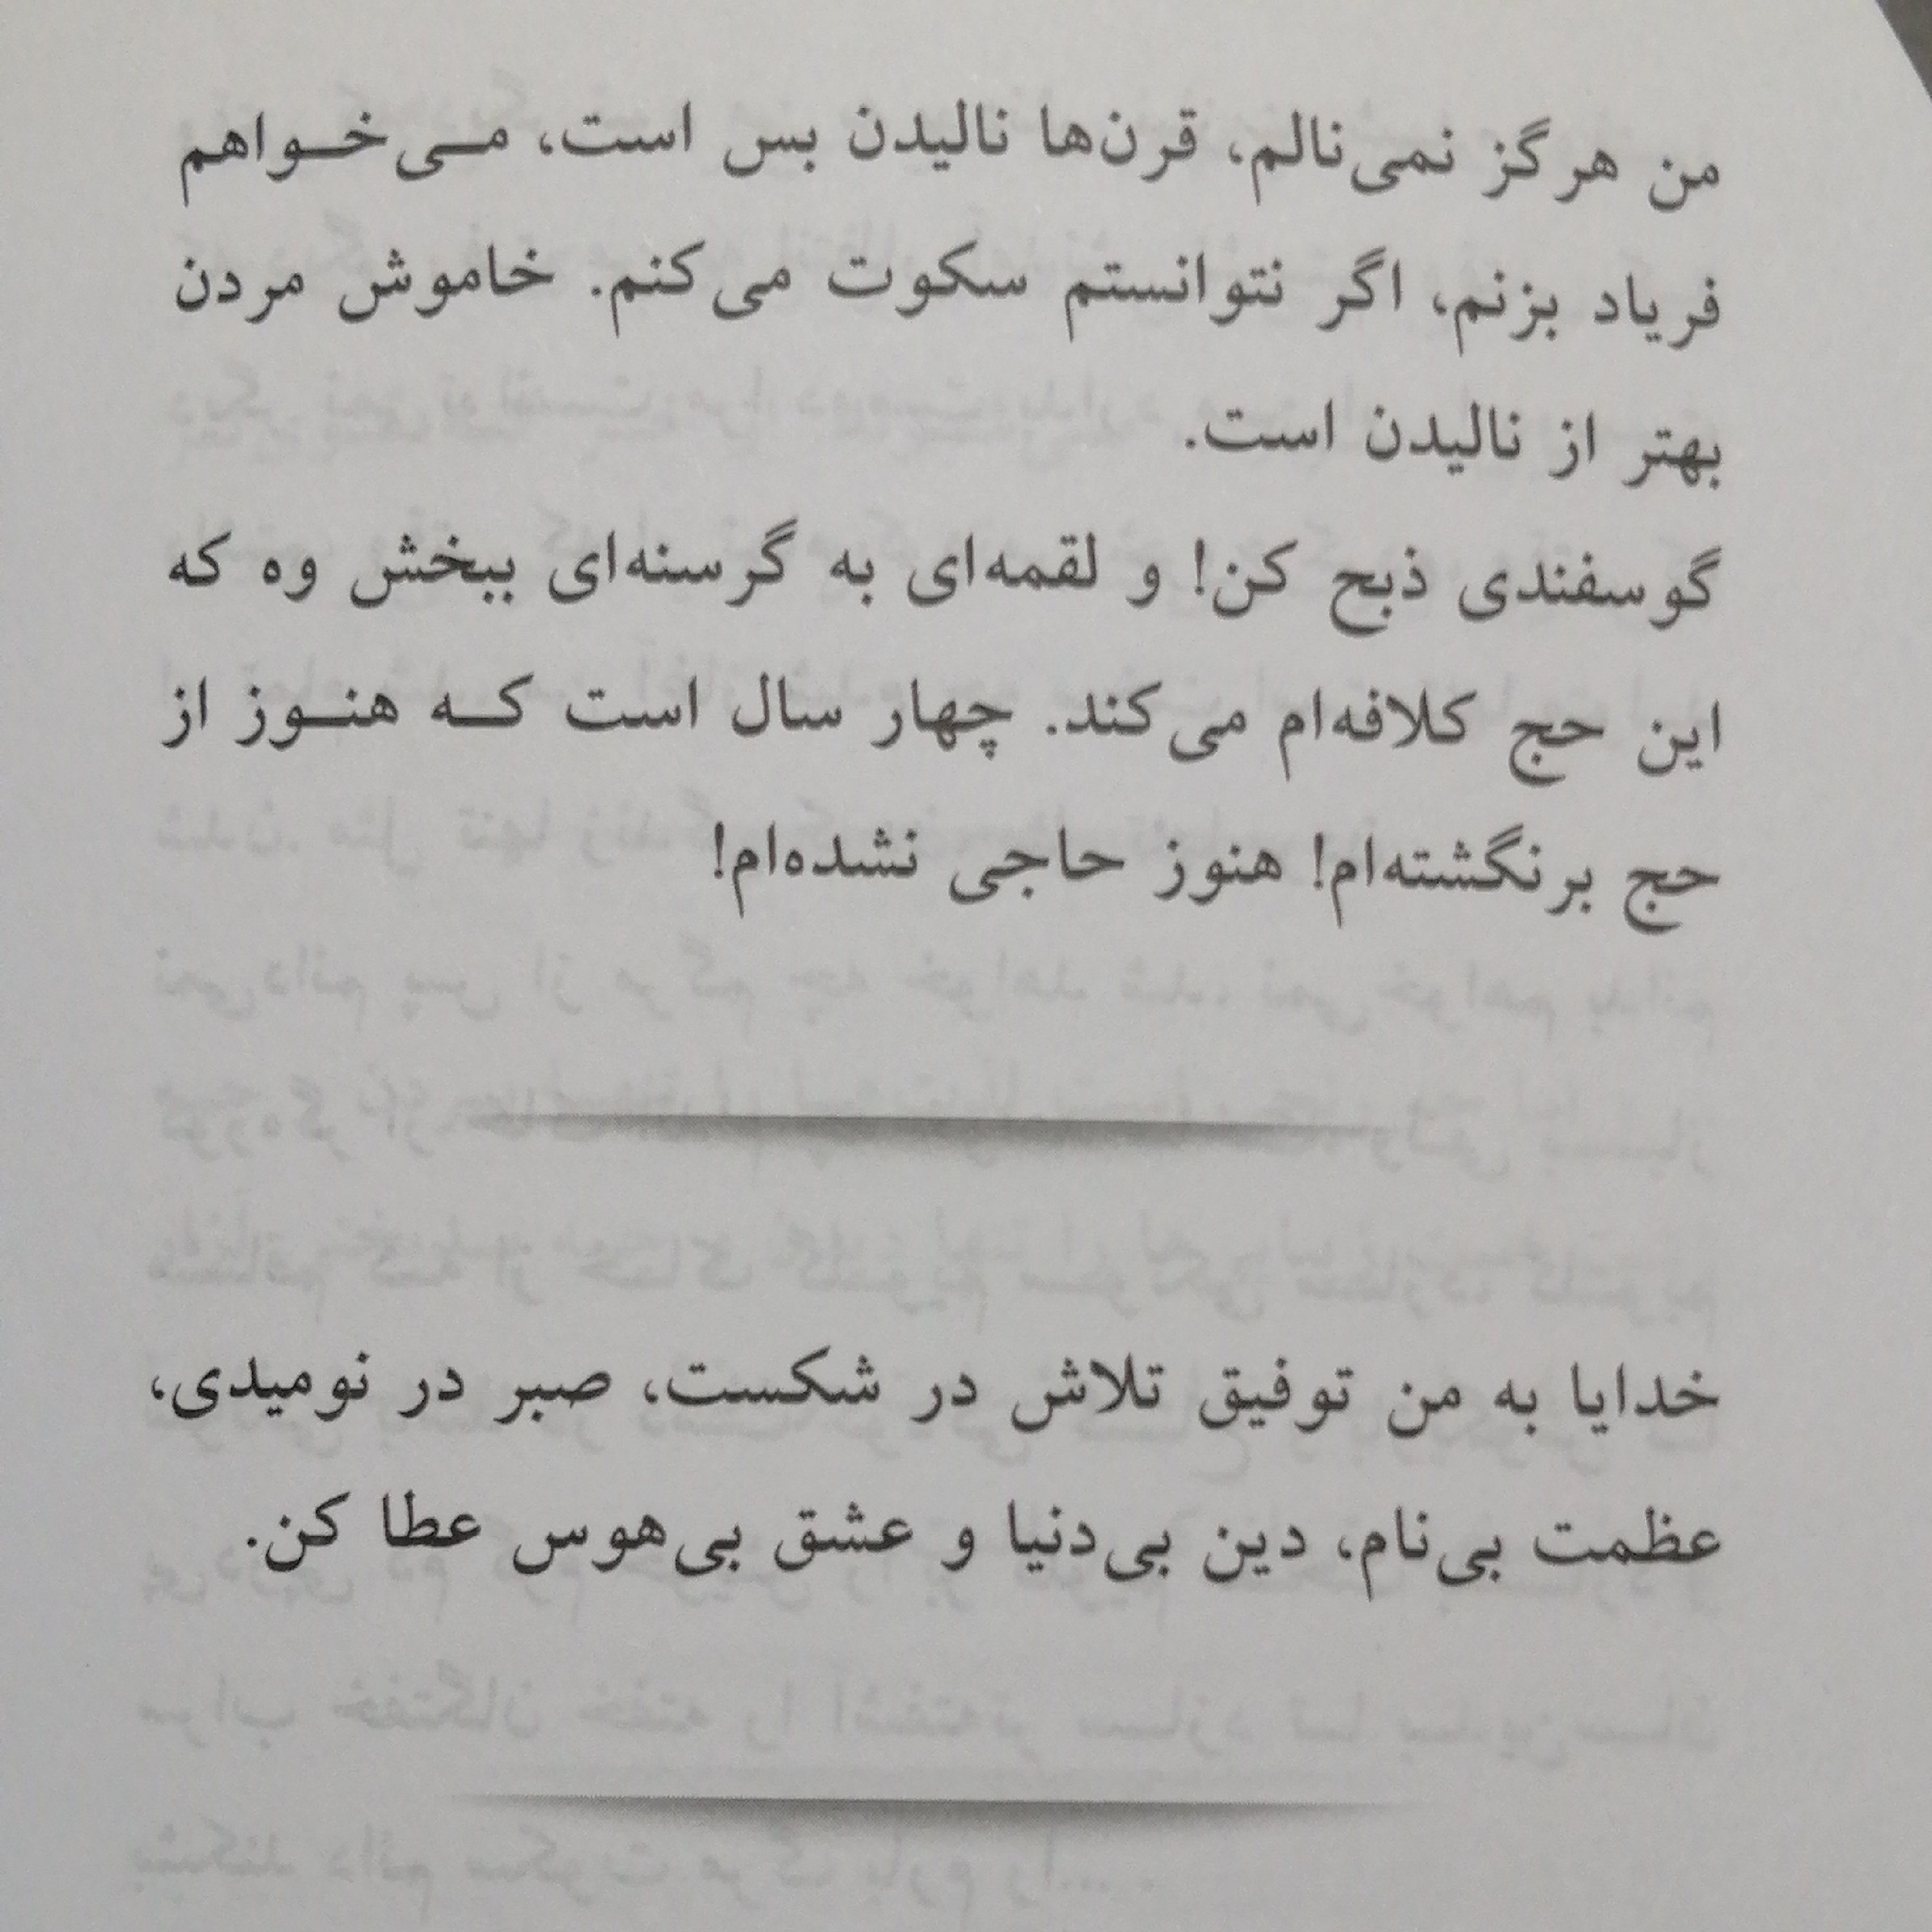 من هرگز نمی‌نالم، قرن‌ها نالیدن بس است، می‌خواهم
فریاد بزنم، اگر نتوانستم سکوت می‌کنم. خاموش مردن
بهتر از نالیدن است.
گوسفندی ذبح کن! و لقمه‌ای به گرسنه‌ای ببخش وه که
این حج کلافه‌ام می‌کند. چهار سال است که هنوز از
حج برنگشته‌ام! هنوز حاجی نشده‌ام!
خدایا به من توفیق تلاش در شکست، صبر در نومیدی،
عظمت بی‌نام، دین بی‌دنیا و عشق بی‌هوس عطا کن.